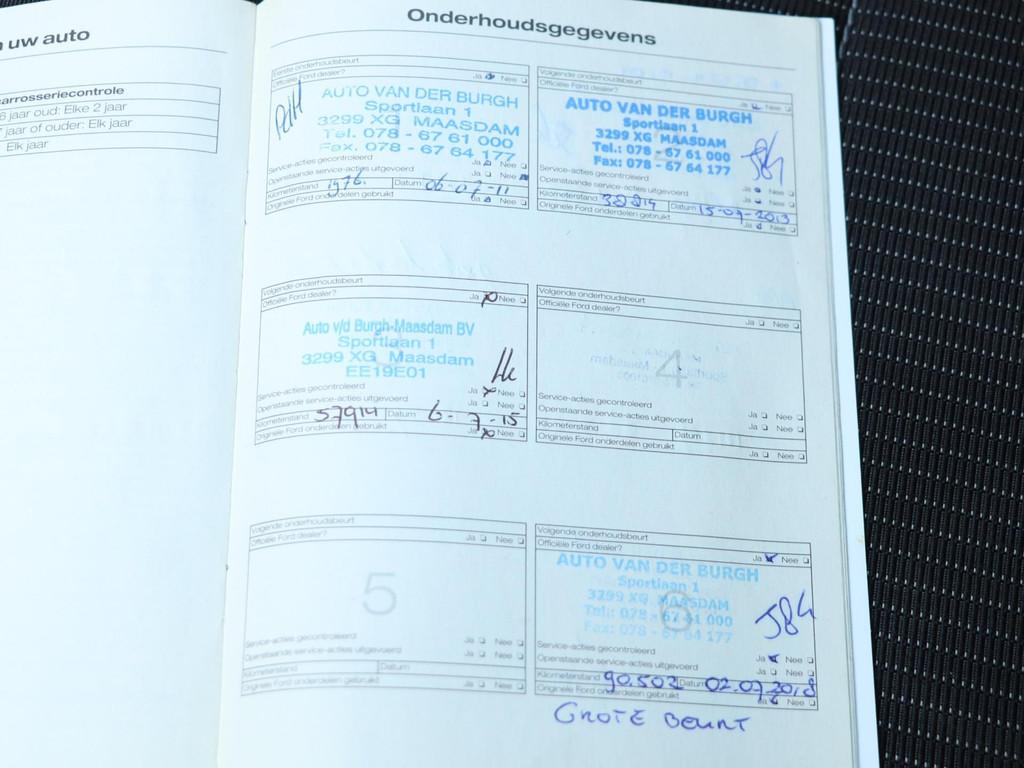 n uw auto
carrosseriecontrole
6 jaar oud: Elke 2 jaar
7 jaar of ouder: Elk jaar
Elk jaar
Onderhoudsgegevens
Eerste onderhoudsbeurt
Officiële Ford dealer? Ja Nee
AUTO VAN DER BURGH
Sportlaan 1
3299 XG MAASDAM
Tel. 078 - 67 61 000
Fax. 078 - 67 64 177
Service-acties gecontroleerd Ja Nee
Openstaande service-acties uitgevoerd Ja Nee
Kilometerstand 1976. Datum 06-07-11
Originele Ford onderdelen gebruikt Ja Nee
Volgende onderhoudsbeurt
Officiële Ford dealer? Ja Nee
AUTO VAN DER BURGH
Sportlaan 1
3299 XG MAASDAM
Tel.: 078 - 67 61 000
Fax: 078 - 67 64 177
Service-acties gecontroleerd Ja Nee
Openstaande service-acties uitgevoerd Ja Nee
Kilometerstand Datum 15-07-2013
Originele Ford onderdelen gebruikt Ja Nee
Volgende onderhoudsbeurt
Officiële Ford dealer? Ja Nee
Auto v/d Burgh-Maasdam BV
Sportlaan 1
3299 XG Maasdam
EE19E01
Service-acties gecontroleerd Ja Nee
Openstaande service-acties uitgevoerd Ja Nee
Kilometerstand 57914 Datum 6-7-15
Originele Ford onderdelen gebruikt Ja Nee
Volgende onderhoudsbeurt
Officiële Ford dealer? Ja Nee
4
Service-acties gecontroleerd Ja Nee
Openstaande service-acties uitgevoerd Ja Nee
Kilometerstand Datum
Originele Ford onderdelen gebruikt Ja Nee
Volgende onderhoudsbeurt
Officiële Ford dealer? Ja Nee
5
Service-acties gecontroleerd Ja Nee
Openstaande service-acties uitgevoerd Ja Nee
Kilometerstand Datum
Originele Ford onderdelen gebruikt Ja Nee
Volgende onderhoudsbeurt
Officiële Ford dealer? Ja Nee
AUTO VAN DER BURGH
Sportlaan 1
3299 XG MAASDAM
Tel.: 078 - 67 61 000
Fax: 078 - 67 64 177
6
Service-acties gecontroleerd Ja Nee
Openstaande service-acties uitgevoerd Ja Nee
Kilometerstand 90.502 Datum 02.07.2018
Originele Ford onderdelen gebruikt Ja Nee
GROTE BEURT